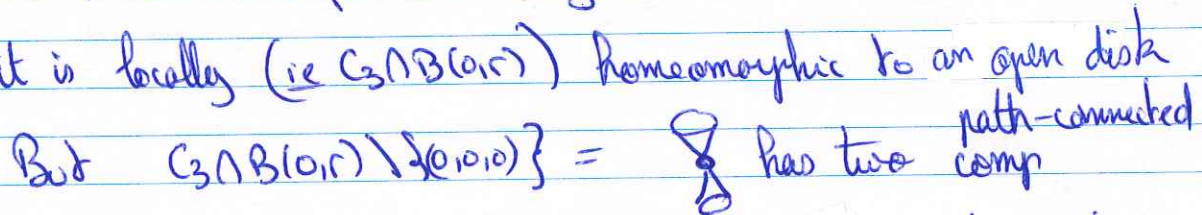 it is locally (ie C₃∩B(0,r)) homeomorphic to an open disk
But C₃∩B(0,r)\{(0,0,0)} = has two path-connected comp